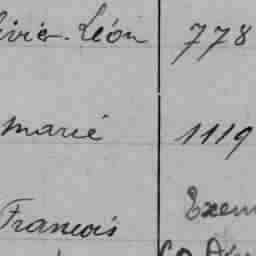 Léon 778
marié 1119
François Exem